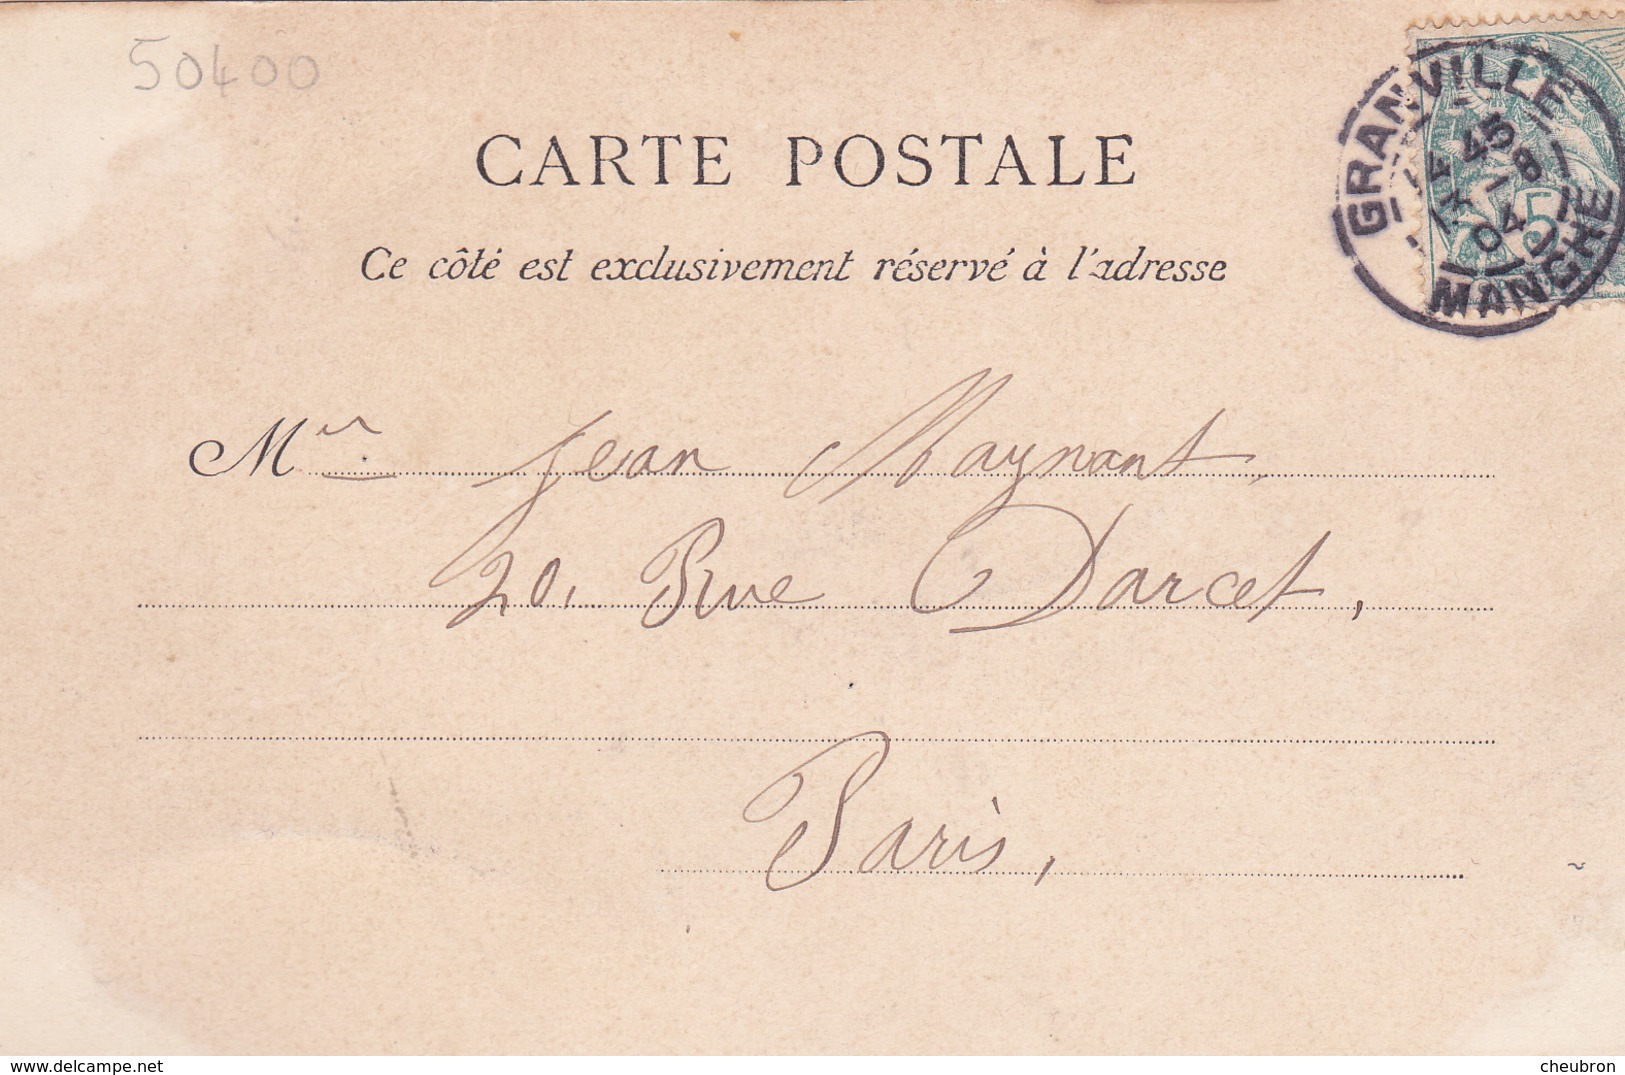 50400
CARTE POSTALE
Ce côté est exclusivement réservé à l'adresse
GRANVILLE
MANCHE
5
Mr Jean Maynant,
20, Rue Darcet,
Paris,
delcampe.net
cheubron